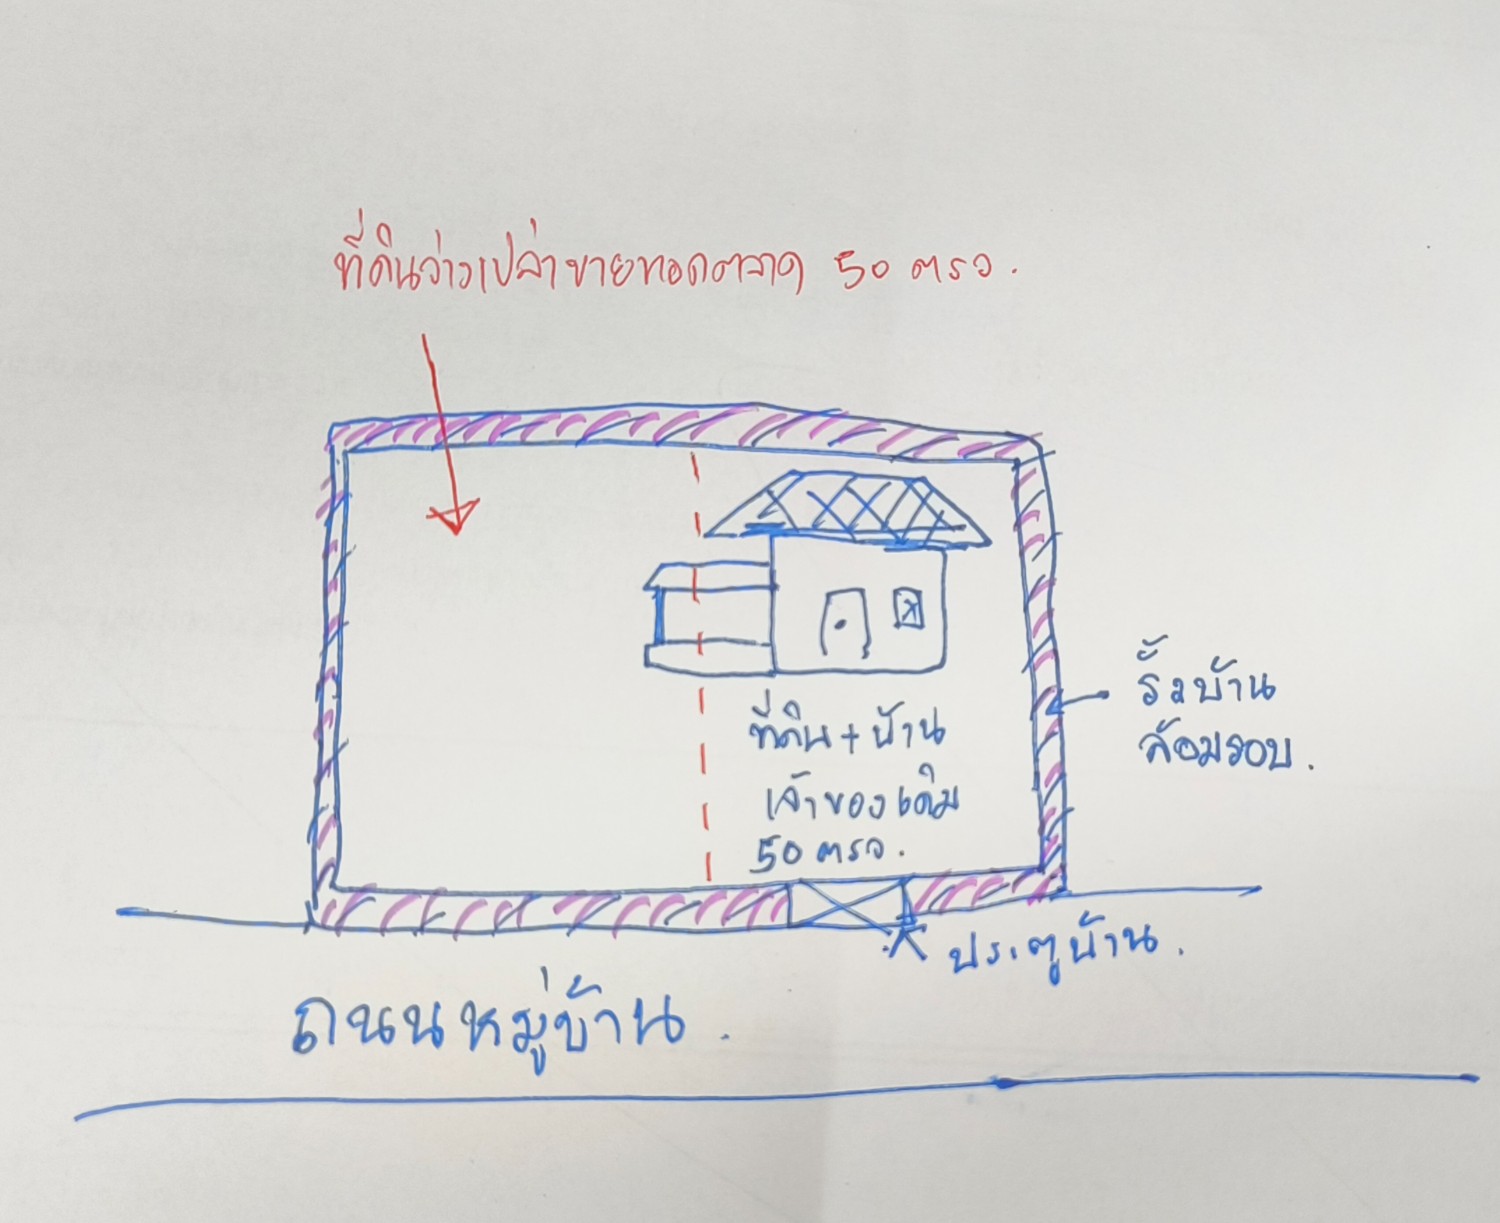 ที่ดินว่างเปล่าขายทอดตลาด 50 ตรว.
ที่ดิน + บ้าน
เจ้าของเดิม
50 ตรว.
รั้วบ้าน
ล้อมรอบ.
ประตูบ้าน.
ถนนหมู่บ้าน.